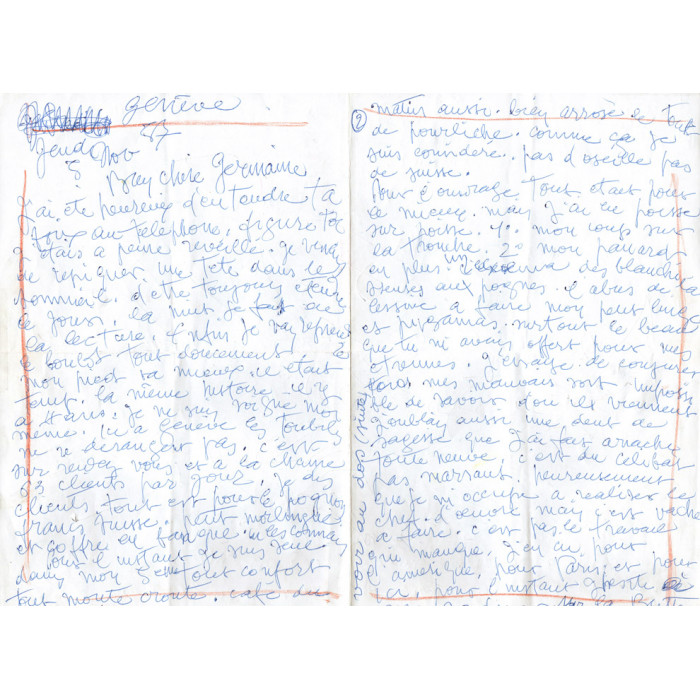 genève
Jeudi Nov 57
5
Bien chère Germaine
J'ai été heureuse d'entendre ta
voix au téléphone. figure toi
j'étais a peine réveillé. je venais
de repiquer une tête dans les
le jour. la nuit je fais de
la lecture. enfin je vais reprendre
le boulot tout doucement
mon pied va mieux. c'était
tout la même histoire
a Paris. je me suis soigné moi
même. ici a genève les toubibs
ne se dérangent pas. c'est
sur rendez vous et a la chaine
clients par jour. je dis
clients. tout est pour le pognon
franc suisse.
et coffre en banque.
pour l'instant je suis seul
dans mon tout confort
tout monte croute. café du
②
matin aussi. bien arrosé le tout
de pourliche. comme ça je
suis considéré. pas d'oseille pas
de suisse.
Pour l'ouvrage tout était pour
le mieux. mais j'ai eu poisse
sur poisse. 1° mon coup sur
la tronche. 2° mon panard
en plus un des blanchis
seuses aux pognes. l'abus de la
lessive a faire mon petit linge
et pyjamas. surtout le beau
que tu m'avais offert pour mes
étrennes. j'essaye de conjurer
mes mauvais sort. impossi
ble de savoir d'ou ils viennent
j'oubliais aussi une dent de
sagesse que j'ai fait arracher
toute neuve. c'est du célibat
pas marrant. heureusement
que je m'occupe a realiser le
chef d'œuvre mais c'est vache
a faire. c'est pas le travail
qui manque. j'en ai pour
l'amérique. pour Paris et pour
ici. pour l'instant
voir au dos (suite)